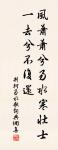 風蕭蕭兮易水寒壯士
一去兮不復還
荊軻易水歌